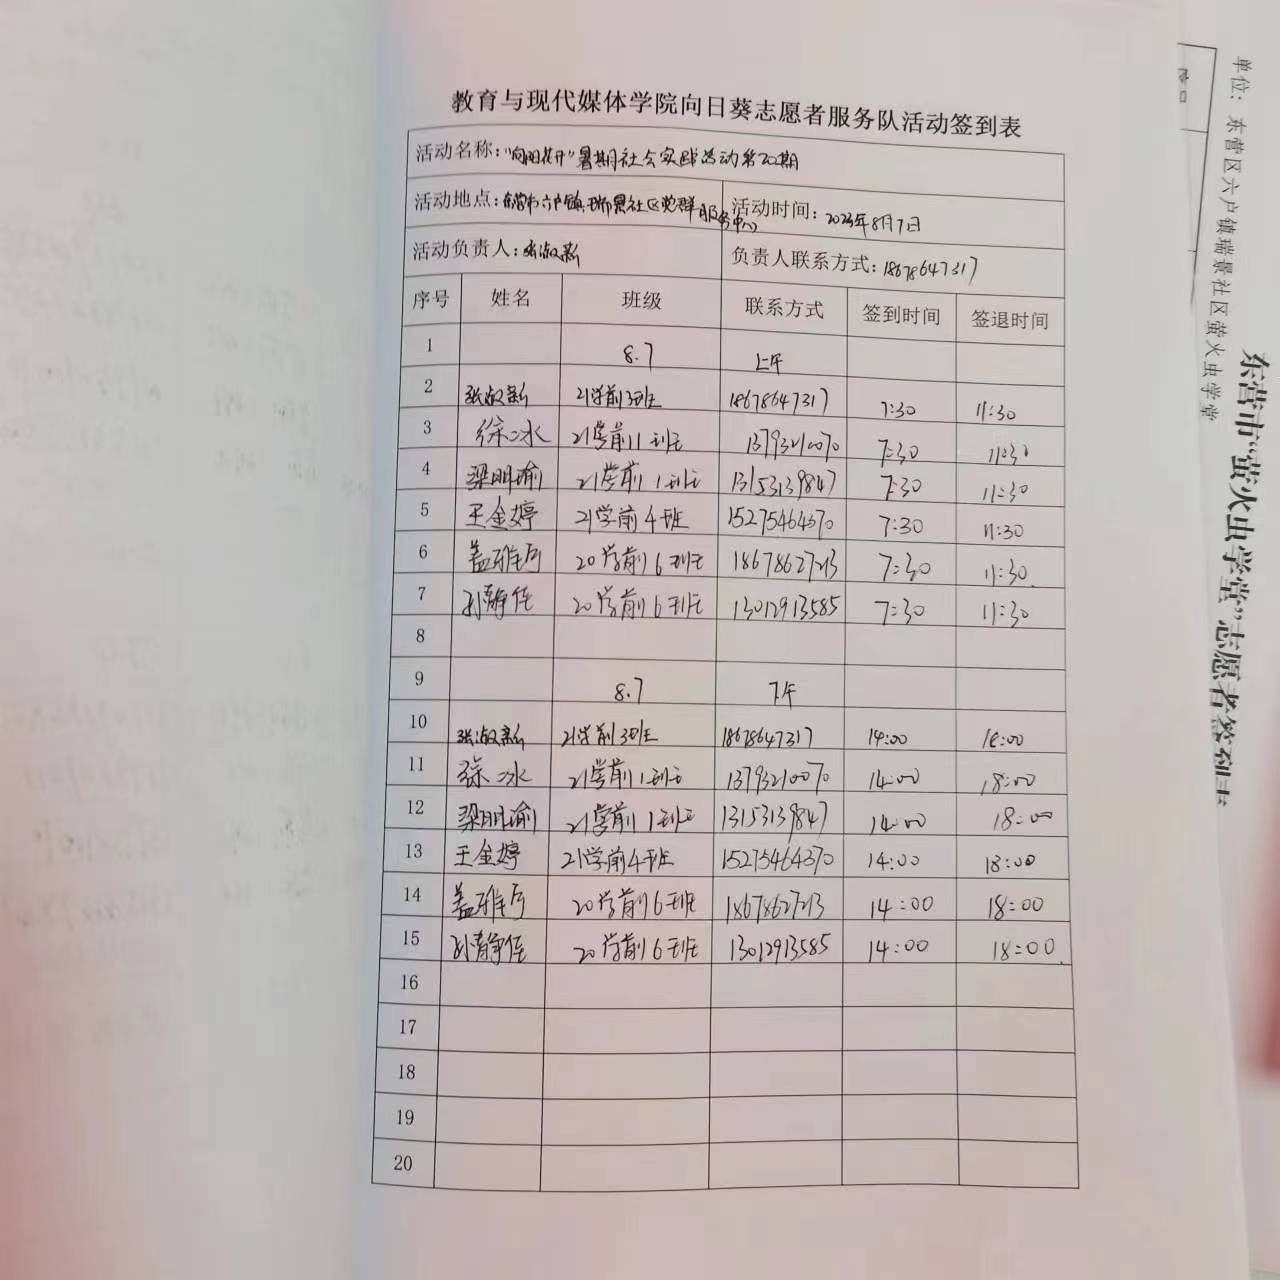 教育与现代媒体学院向日葵志愿者服务队活动签到表
活动名称：“向阳花开”暑期社会实践活动第20期
活动地点：东营市六户镇瑞景社区党群服务中心 活动时间：2023年8月7日
活动负责人：张淑新 负责人联系方式：18678647317
序号 姓名 班级 联系方式 签到时间 签退时间
1 8.7 上午
2 张淑新 21学前3班 18678647317 7:30 11:30
3 徐冰 21学前1班 13793210070 7:30 11:30
4 梁明瑜 21学前1班 13153139847 7:30 11:30
5 王金婷 21学前4班 15275464370 7:30 11:30
6 20学前6班 7:30 11:30
7 孙静佳 20学前6班 13012913585 7:30 11:30
8
9 8.7 下午
10 张淑新 21学前3班 18678647317 14:00 18:00
11 徐冰 21学前1班 13793210070 14:00 18:00
12 梁明瑜 21学前1班 13153139847 14:00 18:00
13 王金婷 21学前4班 15275464370 14:00 18:00
14 20学前6班 14:00 18:00
15 孙静佳 20学前6班 13012913585 14:00 18:00
16
17
18
19
20
东营市“萤火虫学堂”志愿者签到
单位：东营区六户镇瑞景社区萤火虫学堂